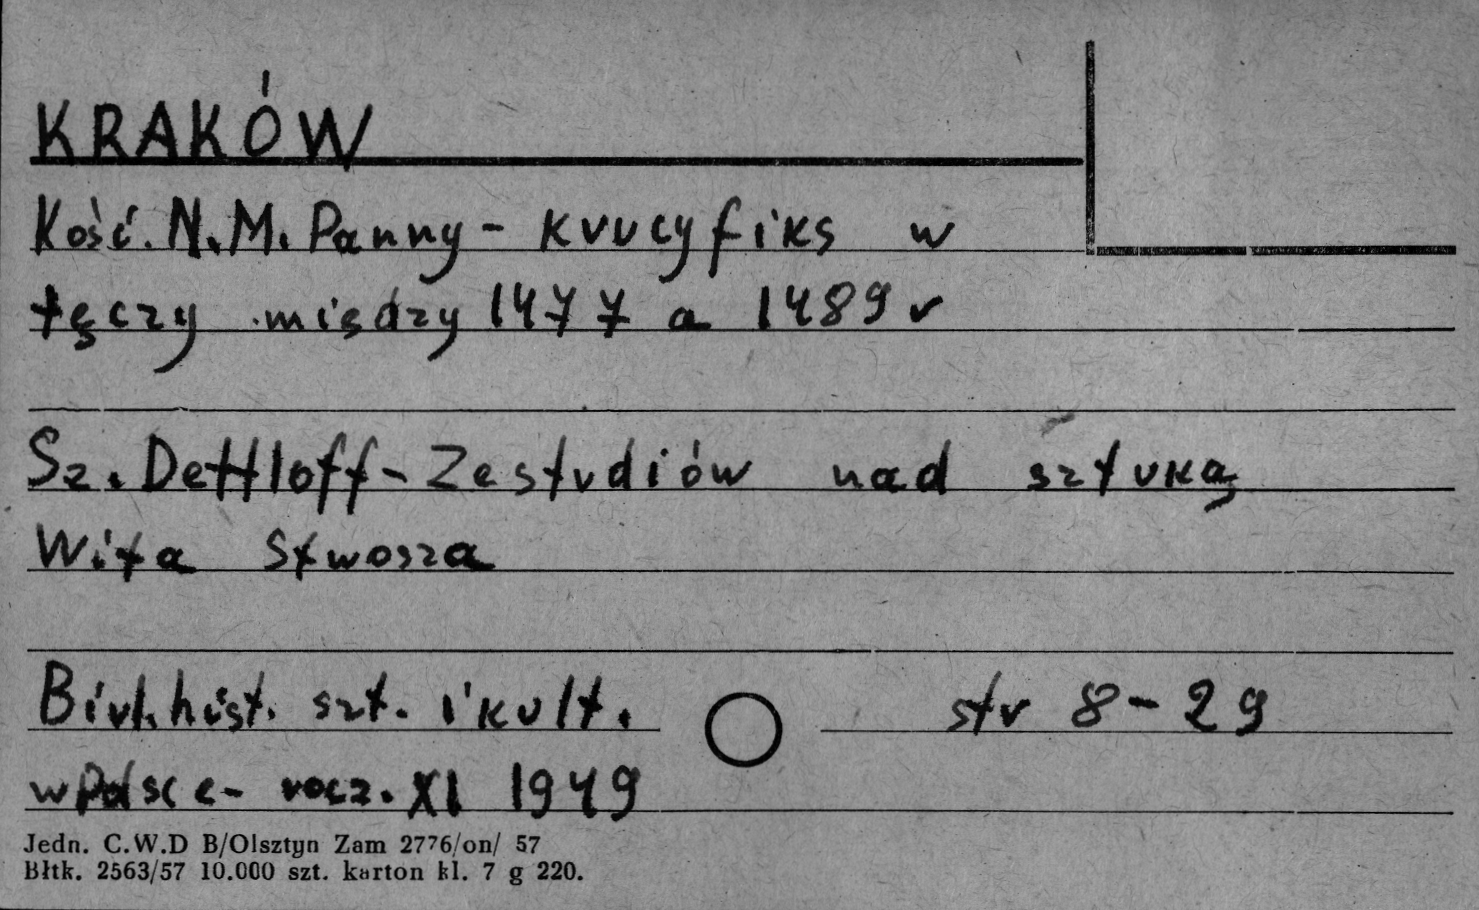 KRAKÓW
Kość. N. M. Panny - krucyfiks w
tęczy między 1477 a 1489 r
Sz. Dettloff - Ze studiów nad sztuką
Wita Stwosza
Biul. hist. szt. i kult. str 8-29
w Polsce - rocz. XI 1949
Jedn. C.W.D B/Olsztyn Zam 2776/on/ 57
Błtk. 2563/57 10.000 szt. karton kl. 7 g 220.